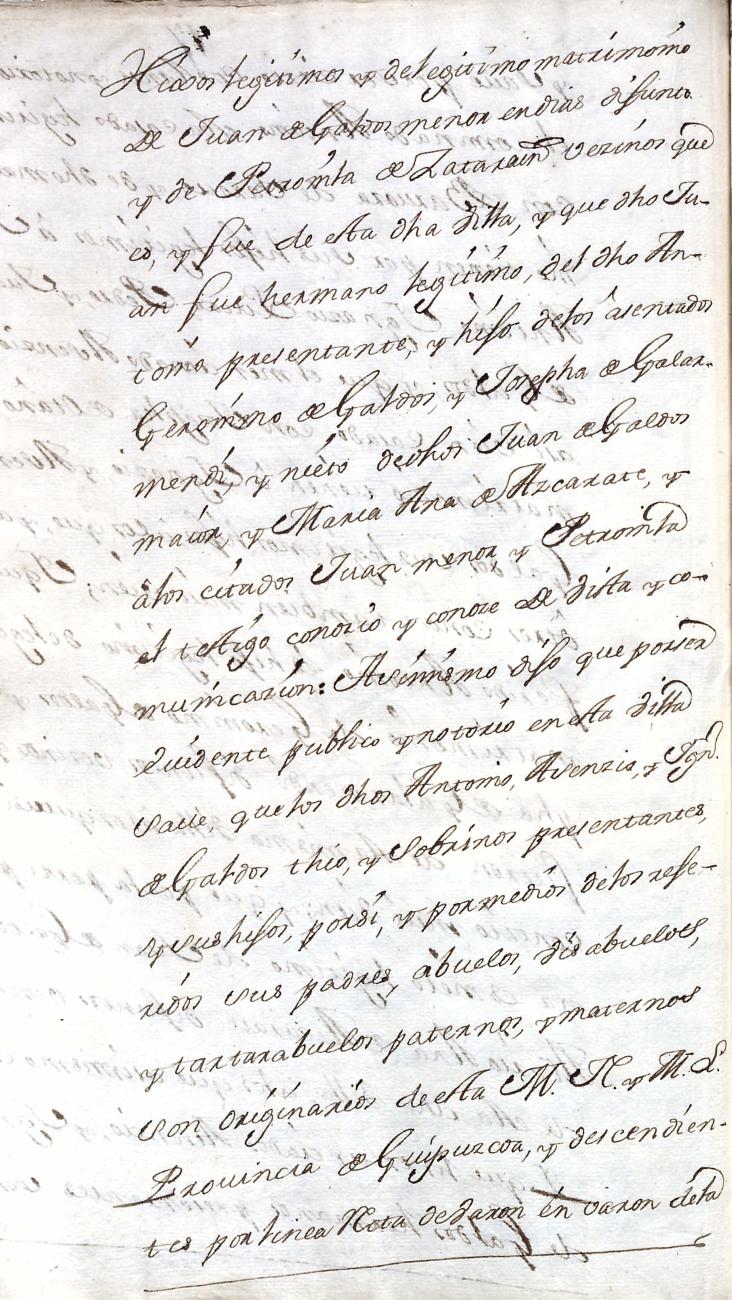 Hixos legitimos y de legitimo matrimonio
de Juan de Galdos menor en dias difunto
y de Petronila de Zatarain vezinos que
es, y fue de esta dha Villa, y que dho Ju-
an fue hermano legitimo, del dho An-
tonio presentante, y hiso de los asentados
Geronimo de Galdos, y Josepha de Galar-
mendi, y nieto de dhos Juan de Galdos
maior, y Maria Ana de Azcarate, y
a los citados Juan menor, y Petronila
el testigo conozio y conoze de vista y co-
municazion: Asimismo diso que por ser
evidente publico y notorio en esta Villa
save, que los dhos Antonio, Asenzio, y Ign.
de Galdos thio, y sobrinos presentantes,
y sus hisos, por si, y por medios de los refe-
ridos sus padres, abuelos, vis abuelos,
y tartarabuelos paternos, y maternos
son originarios de esta M. N. y M. L.
Provincia de Guipuzcoa, y descendien-
tes por linea Recta de varon en varon de la